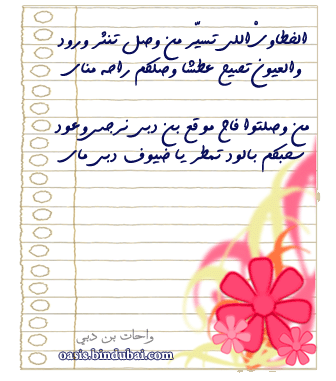 الخطاوي اللي تسيّر من وصل تنثر ورود
والعيون تصبح عطشا وصلكم راحه مناي
من وصلتوا فاح موقع بن دبي نرجس وعود
سحبكم بالود تمطر يا ضيوف دبي ماي
واحات بن دبي
oasis.bindubai.com